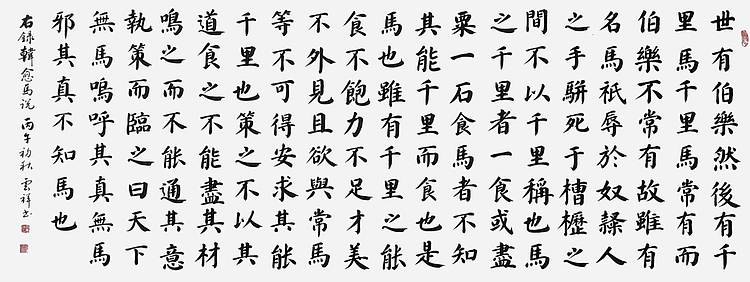 世有伯樂然後有千
里馬千里馬常有而
伯樂不常有故雖有
名馬祇辱於奴隸人
之手駢死于槽櫪之
間不以千里稱也馬
之千里者一食或盡
粟一石食馬者不知
其能千里而食也是
馬也雖有千里之能
食不飽力不足才美
不外見且欲與常馬
等不可得安求其能
千里也策之不以其
道食之不能盡其材
鳴之而不能通其意
執策而臨之曰天下
無馬嗚呼其真無馬
邪其真不知馬也
右錄韓愈馬说 丙午初秋 雲祥书